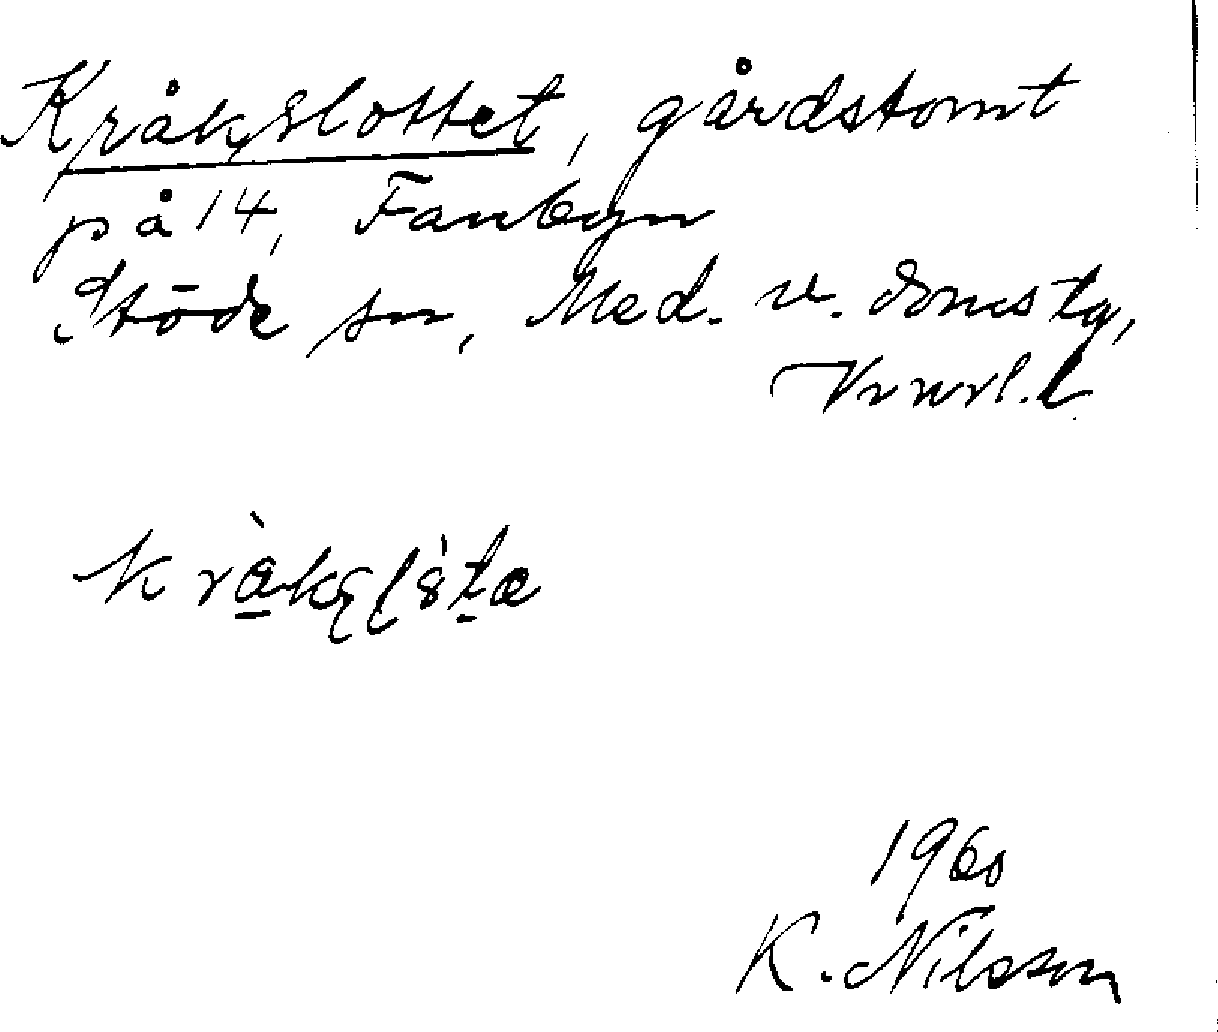 Kråkslottet, gårdstomt
på 14, Fanbyn
Stöde sn, Med. v. domstg,
Vnrl. l
1960
K. Nilsson